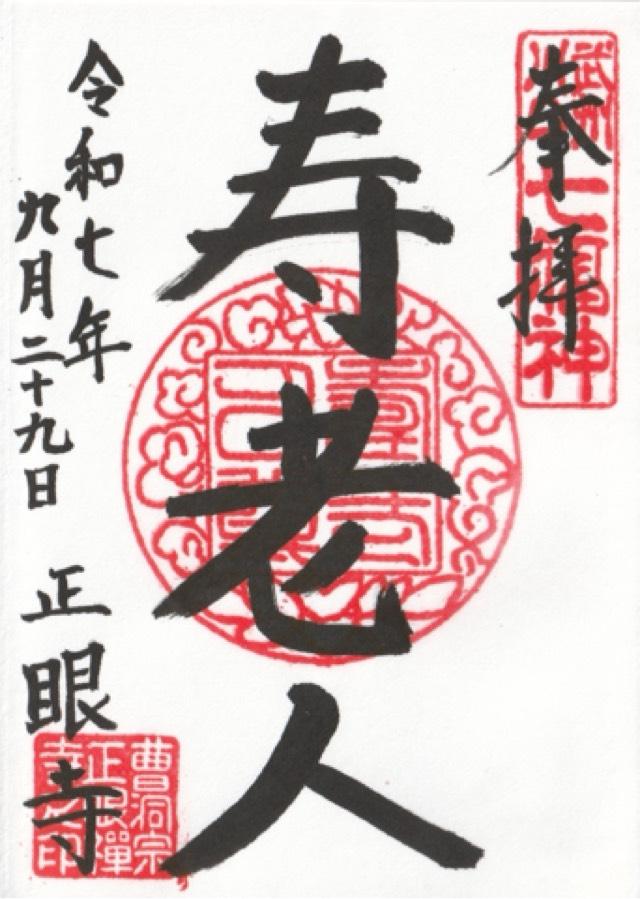 奉拝
七福神
寿老人
令和七年
九月二十九日
正眼寺
曹洞宗
正眼禪
寺之印